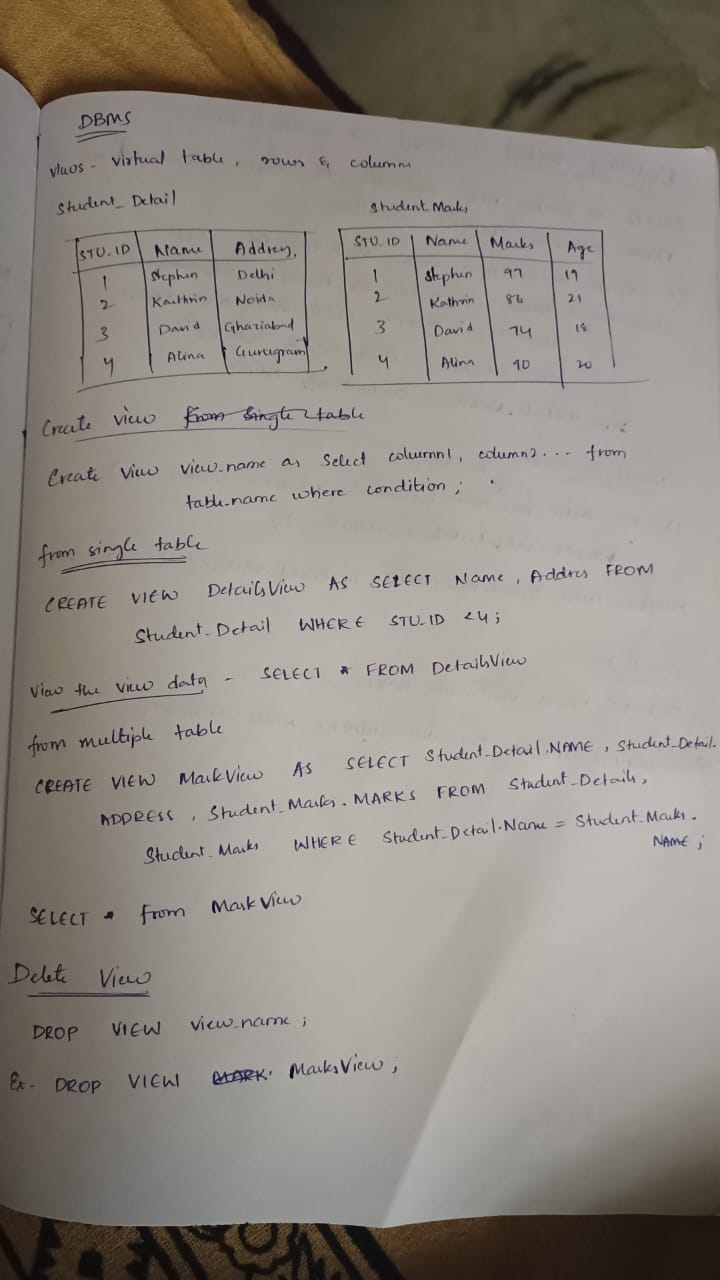 DBMS
views - virtual table, rows & columns
Student_Detail
STU.ID Name Address
1 Stephen Delhi
2 Kaithrin Noida
3 David Ghaziabad
4 Alina Gurugram
Student_Marks
STU.ID Name Marks Age
1 Stephen 97 19
2 Kathrin 86 21
3 David 74 18
4 Alina 90 20
Create view from single table
Create View view_name as Select column1, column2 ... from
table_name where condition;
from single table
CREATE VIEW DetailsView AS SELECT Name, Addres FROM
Student_Detail WHERE STU_ID <4;
View the view data - SELECT * FROM DetailsView
from multiple table
CREATE VIEW MarkView AS SELECT Student_Detail.NAME, Student_Detail.
ADDRESS, Student_Marks.MARKS FROM Student_Details,
Student_Marks WHERE Student_Detail.Name = Student_Marks.
NAME;
SELECT * from MarkView
Delete View
DROP VIEW view_name;
Ex- DROP VIEW MARK. MarksView;